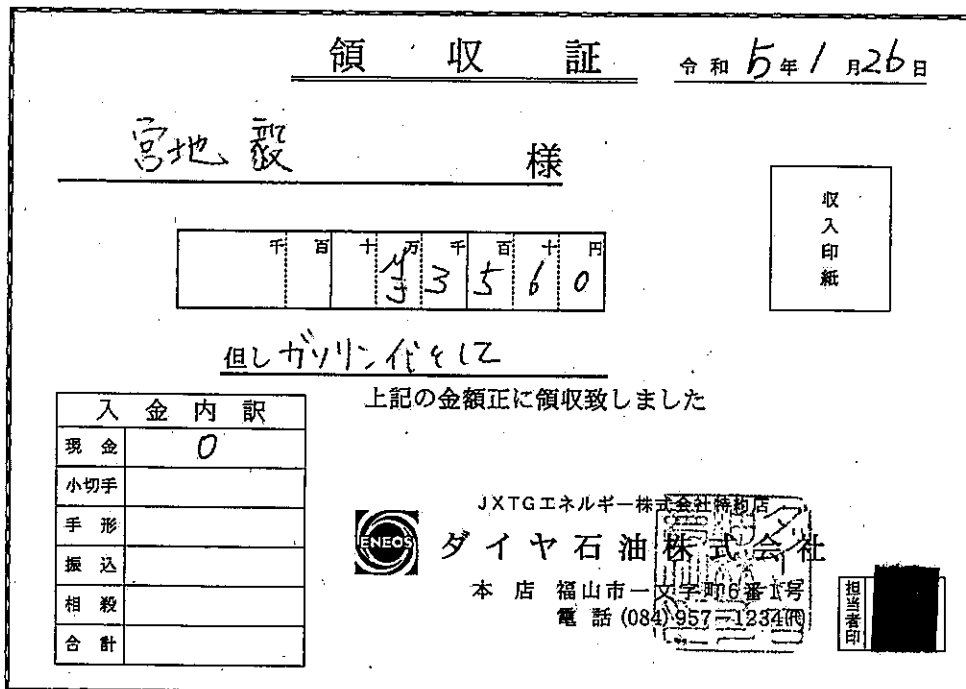 領収証
令和5年1月26日
宮地 毅 様
収入印紙
千百十万千百十円
¥3560
但しガソリン代として
上記の金額正に領収致しました
入金内訳
現金 0
小切手
手形
振込
相殺
合計
JXTGエネルギー株式会社特約店
ENEOS
ダイヤ石油株式会社
本店 福山市一文字町6番1号
電話(084)957-1234(代)
担当者印